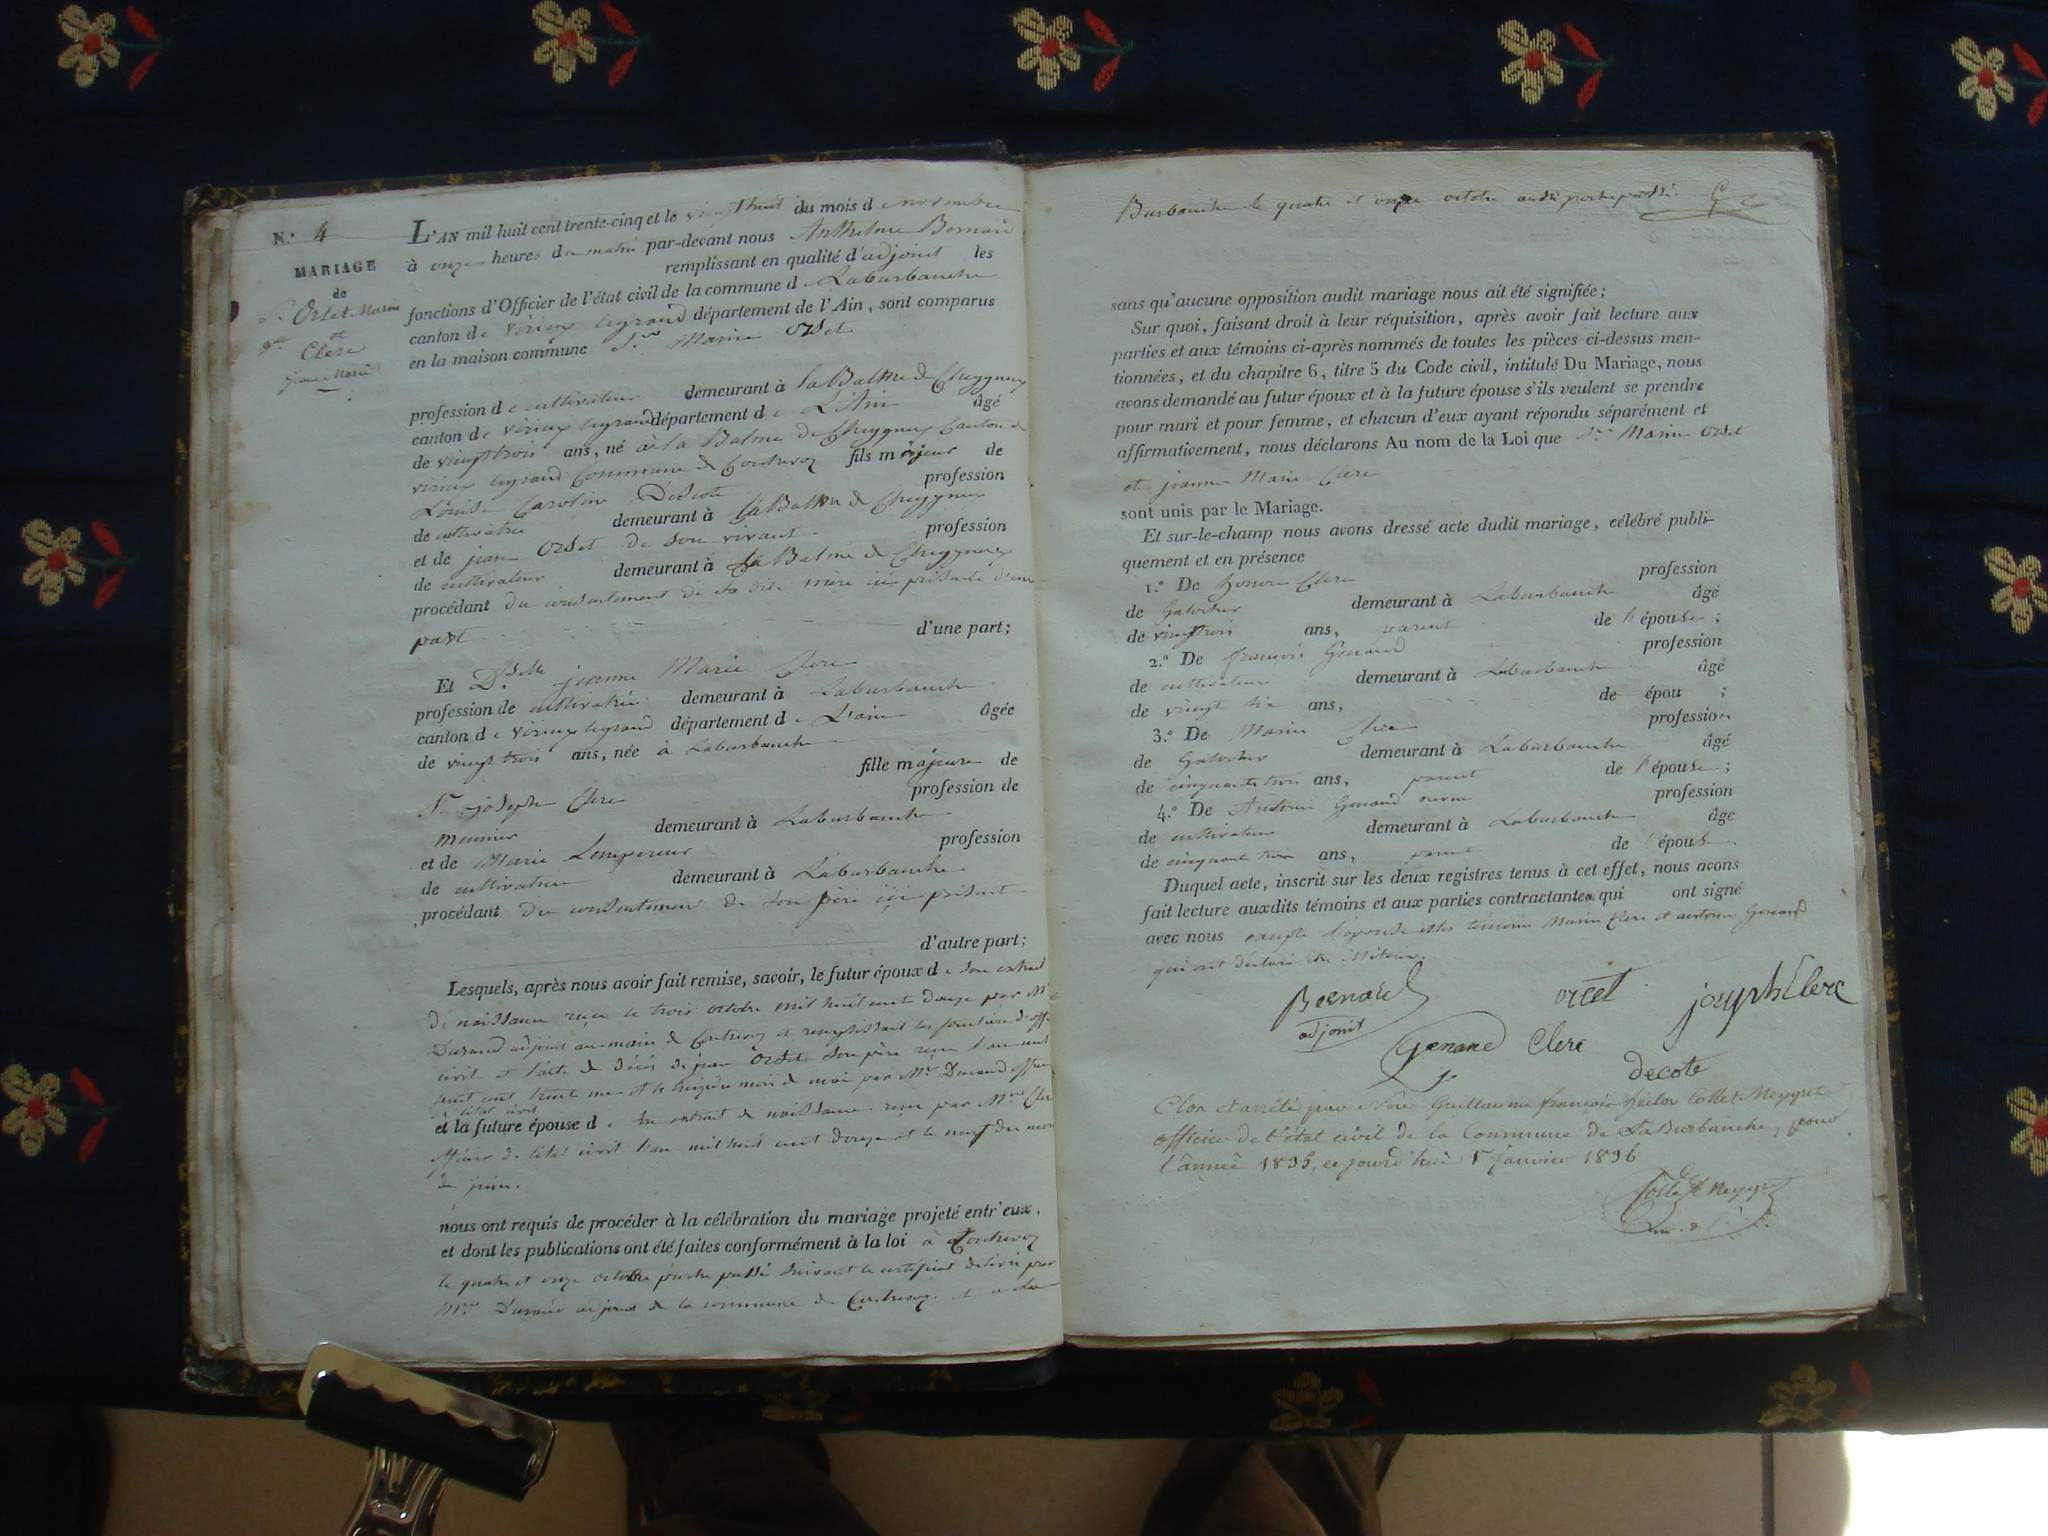 N.° 4
MARIAGE
de
Orset Marin
et
Clerc
jeanne Marie
L'AN mil huit cent trente-cinq et le vingt huit du mois d novembre
à onze heures du matin par-devant nous Anthelme Bernard
remplissant en qualité d'adjoint les
fonctions d'Officier de l'état civil de la commune d Laburbanche
canton de Virieux legrand département de l'Ain, sont comparus
en la maison commune Sr Marin Orset
profession de cultivateur demeurant à la Balme de Cheygneux
canton de Virieux legrand département de L'Ain âgé
de vingt trois ans, né à la Balme de Cheygneux Canton de
virieux legrand Commune de Contrevoz fils majeur de
Louise Caroline Decote profession
de cultivatrice demeurant à la Balme de Cheygneux
et de jean Orset de son vivant profession
de cultivateur demeurant à La Balme de Cheygneux
procédant du consentement de sa dite mère ici présente d'une
part d'une part;
Et Dselle jeanne Marie Clerc
profession de cultivatrice demeurant à Laburbanche
canton de Virieux legrand département de L'ain âgée
de vingt trois ans, née à Laburbanche
fille majeure de
Sr joseph Clerc profession de
meunier demeurant à Laburbanche
et de Marie Lempereur profession
de cultivatrice demeurant à Laburbanche
procédant du consentement de son père ici présent
d'autre part;
Lesquels, après nous avoir fait remise, savoir, le futur époux de son extrait
de naissance reçu le trois octobre mil huit cent douze par Mr
Durand adjoint au maire de Contrevoz remplissant les fonctions d'off
civil et l'acte de décès de jean Orset son père reçu l'an mil
huit cent trente un et le treizième mois de mai par Mr Durand officier
de l'état civil
et la future épouse de un extrait de naissance reçu par Mre Clerc
officier de l'état civil l'an mil huit cent douze et le neuf du mois
de juin.
nous ont requis de procéder à la célébration du mariage projeté entr'eux,
et dont les publications ont été faites conformément à la loi à Contrevoz
le quatre et onze octobre proche passé suivant le certificat délivré par
Mre Durand adjoint de la commune de Contrevoz et à La
Burbanche le quatre et onze octobre audit proche passé.
sans qu'aucune opposition audit mariage nous ait été signifiée;
Sur quoi, faisant droit à leur réquisition, après avoir fait lecture aux
parties et aux témoins ci-après nommés de toutes les pièces ci-dessus men-
tionnées, et du chapitre 6, titre 5 du Code civil, intitulé Du Mariage, nous
avons demandé au futur époux et à la future épouse s'ils veulent se prendre
pour mari et pour femme, et chacun d'eux ayant répondu séparément et
affirmativement, nous déclarons Au nom de la Loi que Sr Marin Orset
et jeanne Marie Clerc
sont unis par le Mariage.
Et sur-le-champ nous avons dressé acte dudit mariage, célébré publi-
quement et en présence
1.° De honoré Clerc profession
de Galocher demeurant à Laburbanche âgé
de vingt trois ans, parent de l'épouse;
2.° De françois Genand profession
de cultivateur demeurant à Laburbanche âgé
de vingt six ans, de épou ;
3.° De Marin Clerc profession
de Galocher demeurant à Laburbanche âgé
de cinquante trois ans, parent de l'épouse;
4.° De Antoine Genand profession
de cultivateur demeurant à Laburbanche âgé
de cinquante trois ans, parent de l'épouse.
Duquel acte, inscrit sur les deux registres tenus à cet effet, nous avons
fait lecture auxdits témoins et aux parties contractantes qui ont signé
avec nous excepté l'épouse et les témoins Marin Clerc et antoine Genand
qui ont déclaré être illiteré.
Bernard
adjoint
orcet
joseph Clerc
Genand
Clerc
decote
Clos et arrêté par Nous Guillaume françois hector Collet Meygret
officier de l'état civil de la Commune de La Burbanche, pour
l'année 1835, ce jourd'hui 1er janvier 1836
Collet Meygret